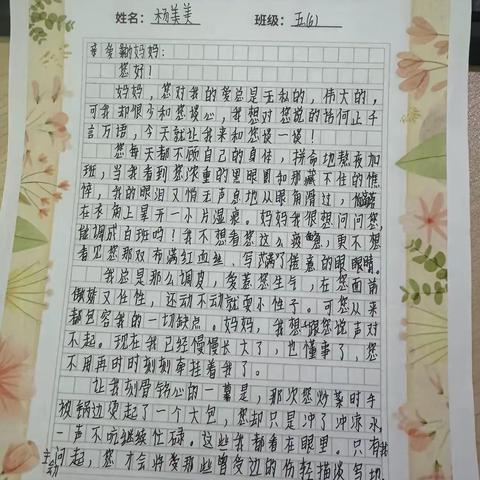 姓名：杨美美 班级：五(6)
亲爱的妈妈：
您好！
妈妈，您对我的爱总是无私的，伟大的，
可我却很少和您谈心，我想对您说的话何止千
言万语，今天就让我来和您谈一谈！
您每天都不顾自己的身体，拼命地熬夜加
班，当我看到您浓重的黑眼圈和那藏不住的憔
悴，我的眼泪又悄无声息地从眼角滑过，
在衣角上晕开一小片湿痕。妈妈我很想问问您，
能调成白班吗！我不想看您这么疲惫，更不想
看见您那双布满红血丝、写满了倦意的眼睛。
我总是那么调皮，爱惹您生气，在您面前
傲娇又任性，还动不动就耍小性子。可您从来
都包容我的一切缺点。妈妈，我想跟您说声对
不起。现在我已经慢慢长大了，也懂事了，您
不用再时时刻刻牵挂着我了。
让我刻骨铭心的一幕是，那次您炒菜时手
被锅边烫起了一个大包，您却只是冲了冲凉水，
一声不吭继续忙碌。这些我都看在眼里。只有我
主动问起，您才会将爱那些曾受过的伤轻描淡写地